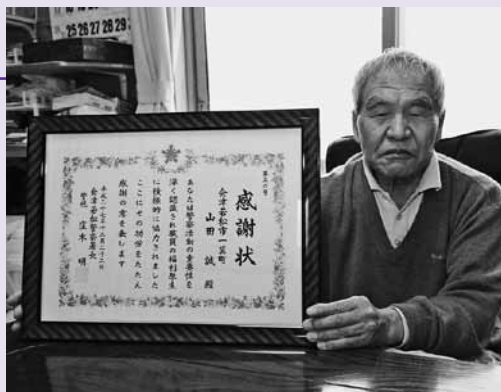 25 26 27 28 29
感謝状
会津若松市一箕町
山田 誠 殿
あなたは警察活動の重要性を
深く認識され職員の福利厚生
に積極的に協力されました
ここにその功労をたたえ
感謝の意を表します
平成二十七年十二月二十二日
会津若松警察署長
警視 窪木 明